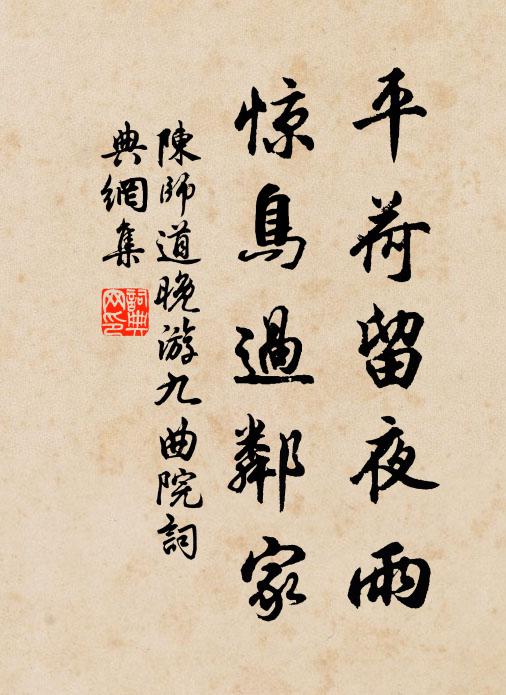 平荷留夜雨
惊鳥過鄰家
陳師道晚游九曲院詞
典網集
詞典網印